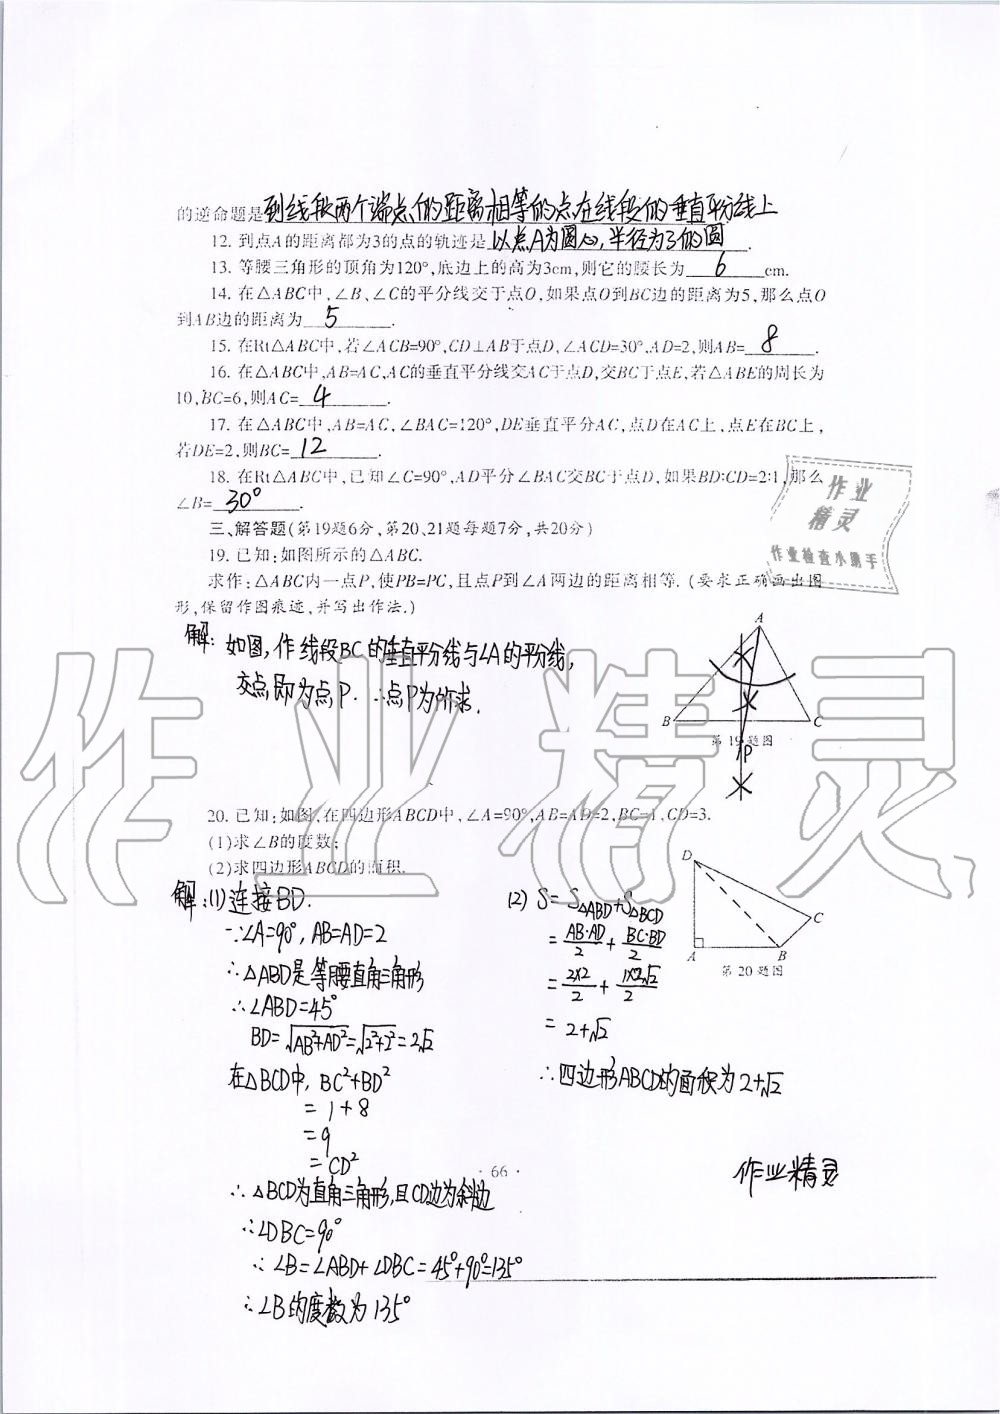 的逆命题是到线段两个端点的距离相等的点在线段的垂直平分线上
12. 到点A的距离都为3的点的轨迹是以点A为圆心,半径为3的圆.
13. 等腰三角形的顶角为120°,底边上的高为3cm,则它的腰长为6cm.
14. 在△ABC中,∠B、∠C的平分线交于点O,如果点O到BC边的距离为5,那么点O
到AB边的距离为5.
15. 在Rt△ABC中,若∠ACB=90°,CD⊥AB于点D,∠ACD=30°,AD=2,则AB=8.
16. 在△ABC中,AB=AC,AC的垂直平分线交AC于点D,交BC于点E,若△ABE的周长为
10,BC=6,则AC=4.
17. 在△ABC中,AB=AC,∠BAC=120°,DE垂直平分AC,点D在AC上,点E在BC上,
若DE=2,则BC=12.
18. 在Rt△ABC中,已知∠C=90°,AD平分∠BAC交BC于点D,如果BD:CD=2:1,那么
∠B=30°.
作业
精灵
作业检查小助手
三、解答题(第19题6分,第20、21题每题7分,共20分)
19. 已知:如图所示的△ABC.
求作:△ABC内一点P,使PB=PC,且点P到∠A两边的距离相等.(要求正确画出图
形,保留作图痕迹,并写出作法.)
解:如图,作线段BC的垂直平分线与∠A的平分线,
交点即为点P.∴点P为所求.
A
B
C
P
第19题图
作业精灵
20. 已知:如图,在四边形ABCD中,∠A=90°,AB=AD=2,BC=1,CD=3.
(1)求∠B的度数;
(2)求四边形ABCD的面积.
D
C
A
B
第20题图
解:(1)连接BD.
∵∠A=90°,AB=AD=2
∴△ABD是等腰直角三角形
∴∠ABD=45°
BD=√AB²+AD²=√2²+2²=2√2
在△BCD中,BC²+BD²
=1+8
=9
=CD²
∴△BCD为直角三角形,且CD边为斜边
∴∠DBC=90°
∴∠B=∠ABD+∠DBC=45°+90°=135°
∴∠B的度数为135°
(2) S=S△ABD+S△BCD
=AB·AD/2+BC·BD/2
=2×2/2+1×2√2/2
=2+√2
∴四边形ABCD的面积为2+√2
·66·
作业精灵